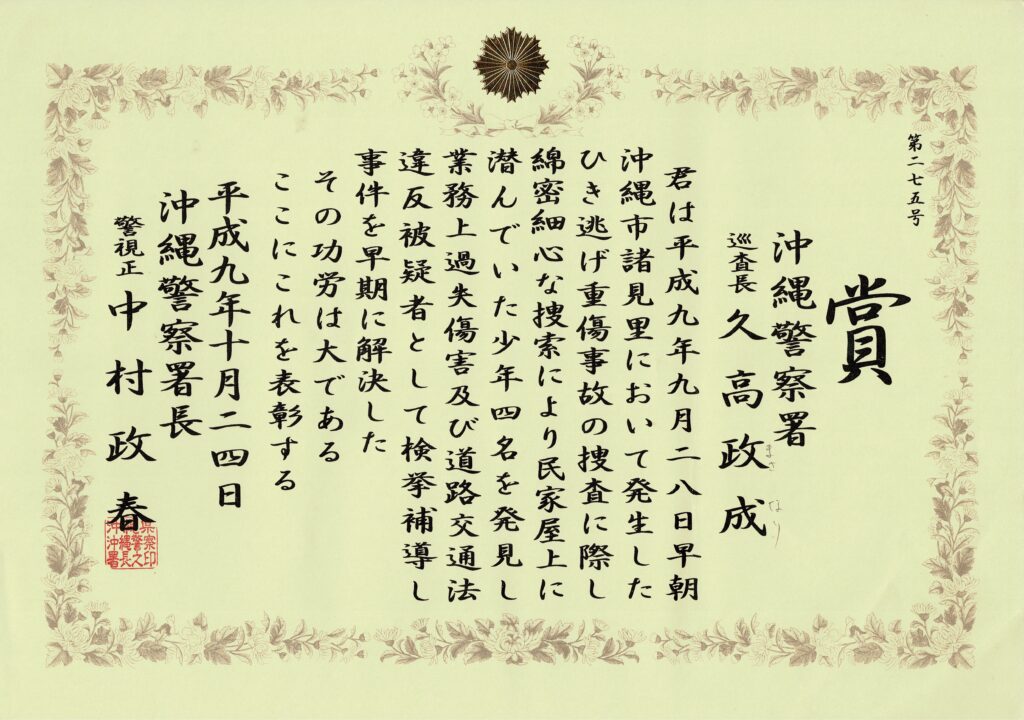 第二七五号
賞
沖縄警察署
巡査長 久高政成
まさ なり
君は平成九年九月二八日早朝
沖縄市諸見里において発生した
ひき逃げ重傷事故の捜査に際し
綿密細心な捜索により民家屋上に
潜んでいた少年四名を発見し
業務上過失傷害及び道路交通法
違反被疑者として検挙補導し
事件を早期に解決した
その功労は大である
ここにこれを表彰する
平成九年十月二四日
沖縄警察署長
警視正 中村政春